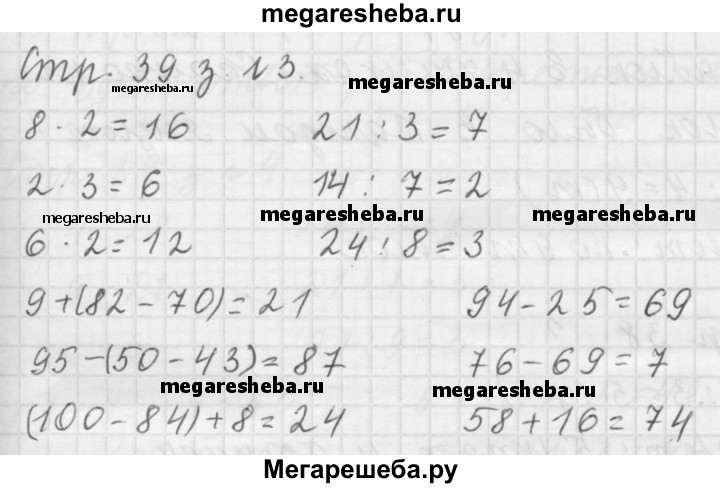 megaresheba.ru
Стр. 39 з. 13.
megaresheba.ru megaresheba.ru
8 · 2 = 16 21 : 3 = 7
2 · 3 = 6 14 : 7 = 2
megaresheba.ru megaresheba.ru megaresheba.ru
6 · 2 = 12 24 : 8 = 3
9 + (82 - 70) = 21 94 - 25 = 69
95 - (50 - 43) = 87 76 - 69 = 7
megaresheba.ru megaresheba.ru
(100 - 84) + 8 = 24 58 + 16 = 74
Мегарешеба.ру